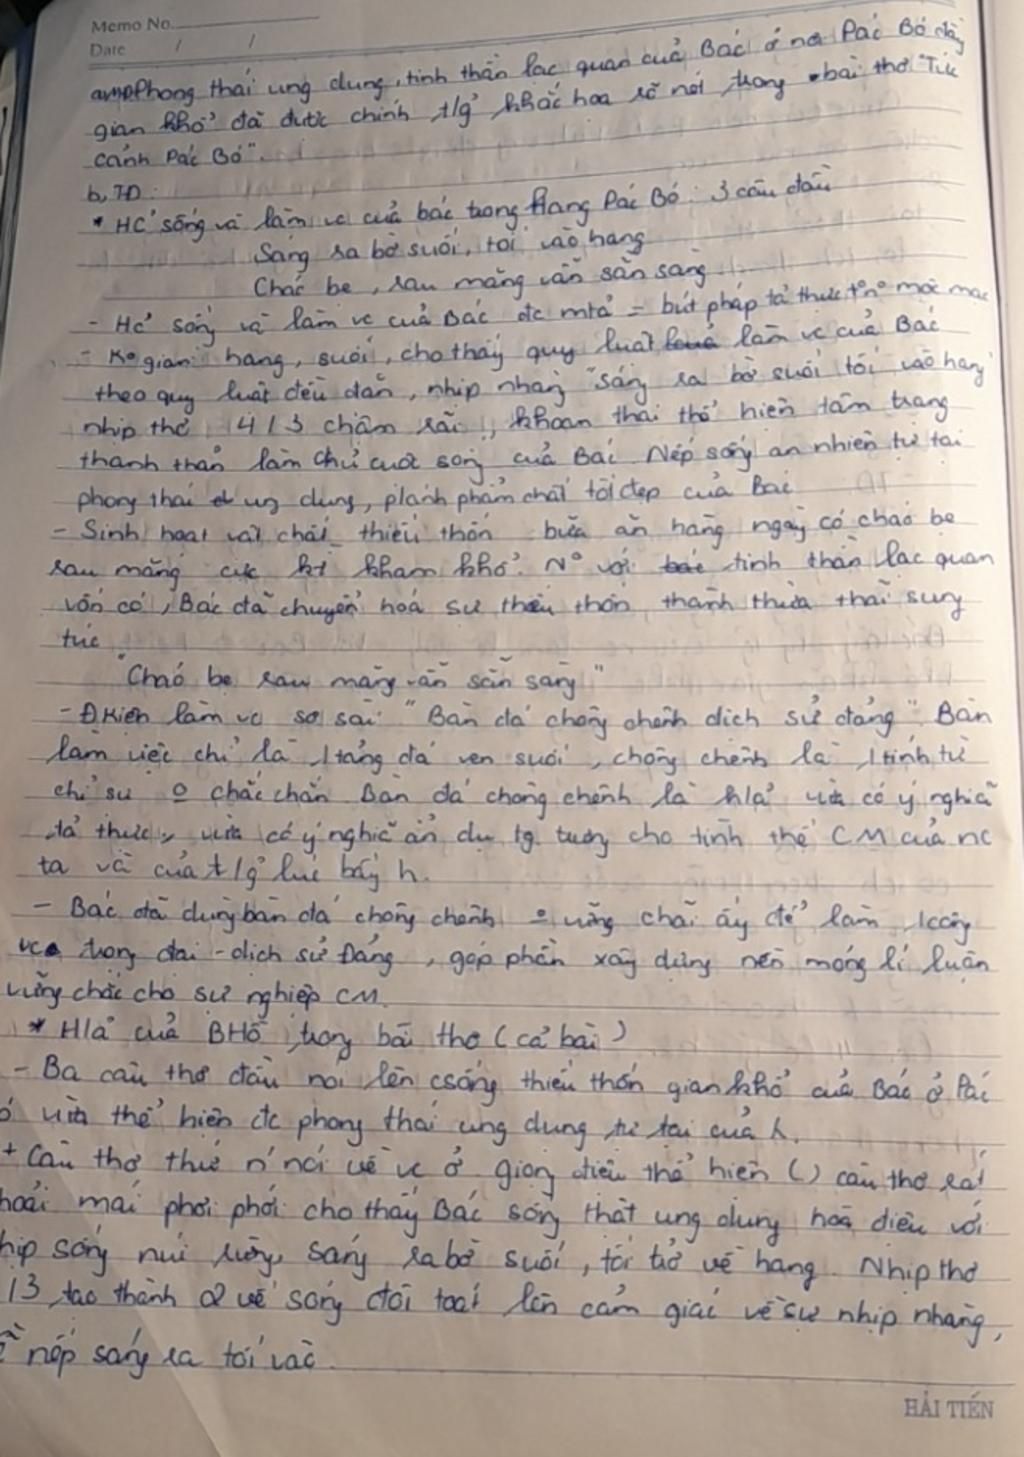 Memo No.
Date / /
Phong thái ung dung, tinh thần lạc quan của Bác ở nơi Pác Bó đầy
gian khổ đã được chính t/g khắc hoạ rõ nét trong bài thơ "Tức
cảnh Pác Bó".
b, TD:
* HC sống và làm vc của bác trong hang Pác Bó: 3 câu đầu
Sáng ra bờ suối, tối vào hang
Cháo bẹ, rau măng vẫn sẵn sàng
- HC sống và làm vc của Bác đc mtả = bút pháp tả thực mộc mạc
- Ko gian: hang, suối, cho thấy quy luật làm vc của Bác
theo quy luật đều đặn, nhịp nhàng "sáng ra bờ suối tối vào hang"
nhịp thơ 4/3 chậm rãi, khoan thai thể hiện tâm trạng
thanh thản làm chủ cuộc sống của Bác. Nếp sống an nhiên tự tại
phong thái ung dung, p/ánh phẩm chất tốt đẹp của Bác
- Sinh hoạt vật chất thiếu thốn bữa ăn hằng ngày có cháo bẹ
rau măng cực kì kham khổ. No với tinh thần lạc quan
vốn có, Bác đã chuyển hoá sự thiếu thốn thành thừa thãi sung
túc
"Cháo bẹ rau măng vẫn sẵn sàng"
- Đkiện làm vc sơ sài "Bàn đá chông chênh dịch sử đảng". Bàn
làm việc chỉ là 1 tảng đá ven suối, chông chênh là 1 tính từ
chỉ sự o chắc chắn Bàn đá chông chênh là h/ả vừa có ý nghĩa
tả thực, vừa có ý nghĩa ẩn dụ tg trưng cho tình thế CM của nc
ta và của t/g lúc bấy h.
- Bác đã dùng bàn đá chông chênh o vững chãi ấy để làm 1 công
vc trọng đại - dịch sử Đảng, góp phần xây dựng nền móng lí luận
vững chắc cho sự nghiệp CM.
* H/ả của BHồ trong bài thơ (cả bài)
- Ba câu thơ đầu nói lên csống thiếu thốn gian khổ của Bác ở Pác
vừa thể hiện đc phong thái ung dung tự tại của
+ Câu thơ thứ nói về vc ở giọng điệu thể hiện () câu thơ rất
hoải mái phơi phới cho thấy Bác sống thật ung dung hoà điệu với
hịp sống núi rừng, sáng ra bờ suối, tối trở về hang. Nhịp thơ
/3 tạo thành 2 vế sóng đôi toát lên cảm giác về sự nhịp nhàng,
nếp sáng ra tối vào.
HẢI TIẾN